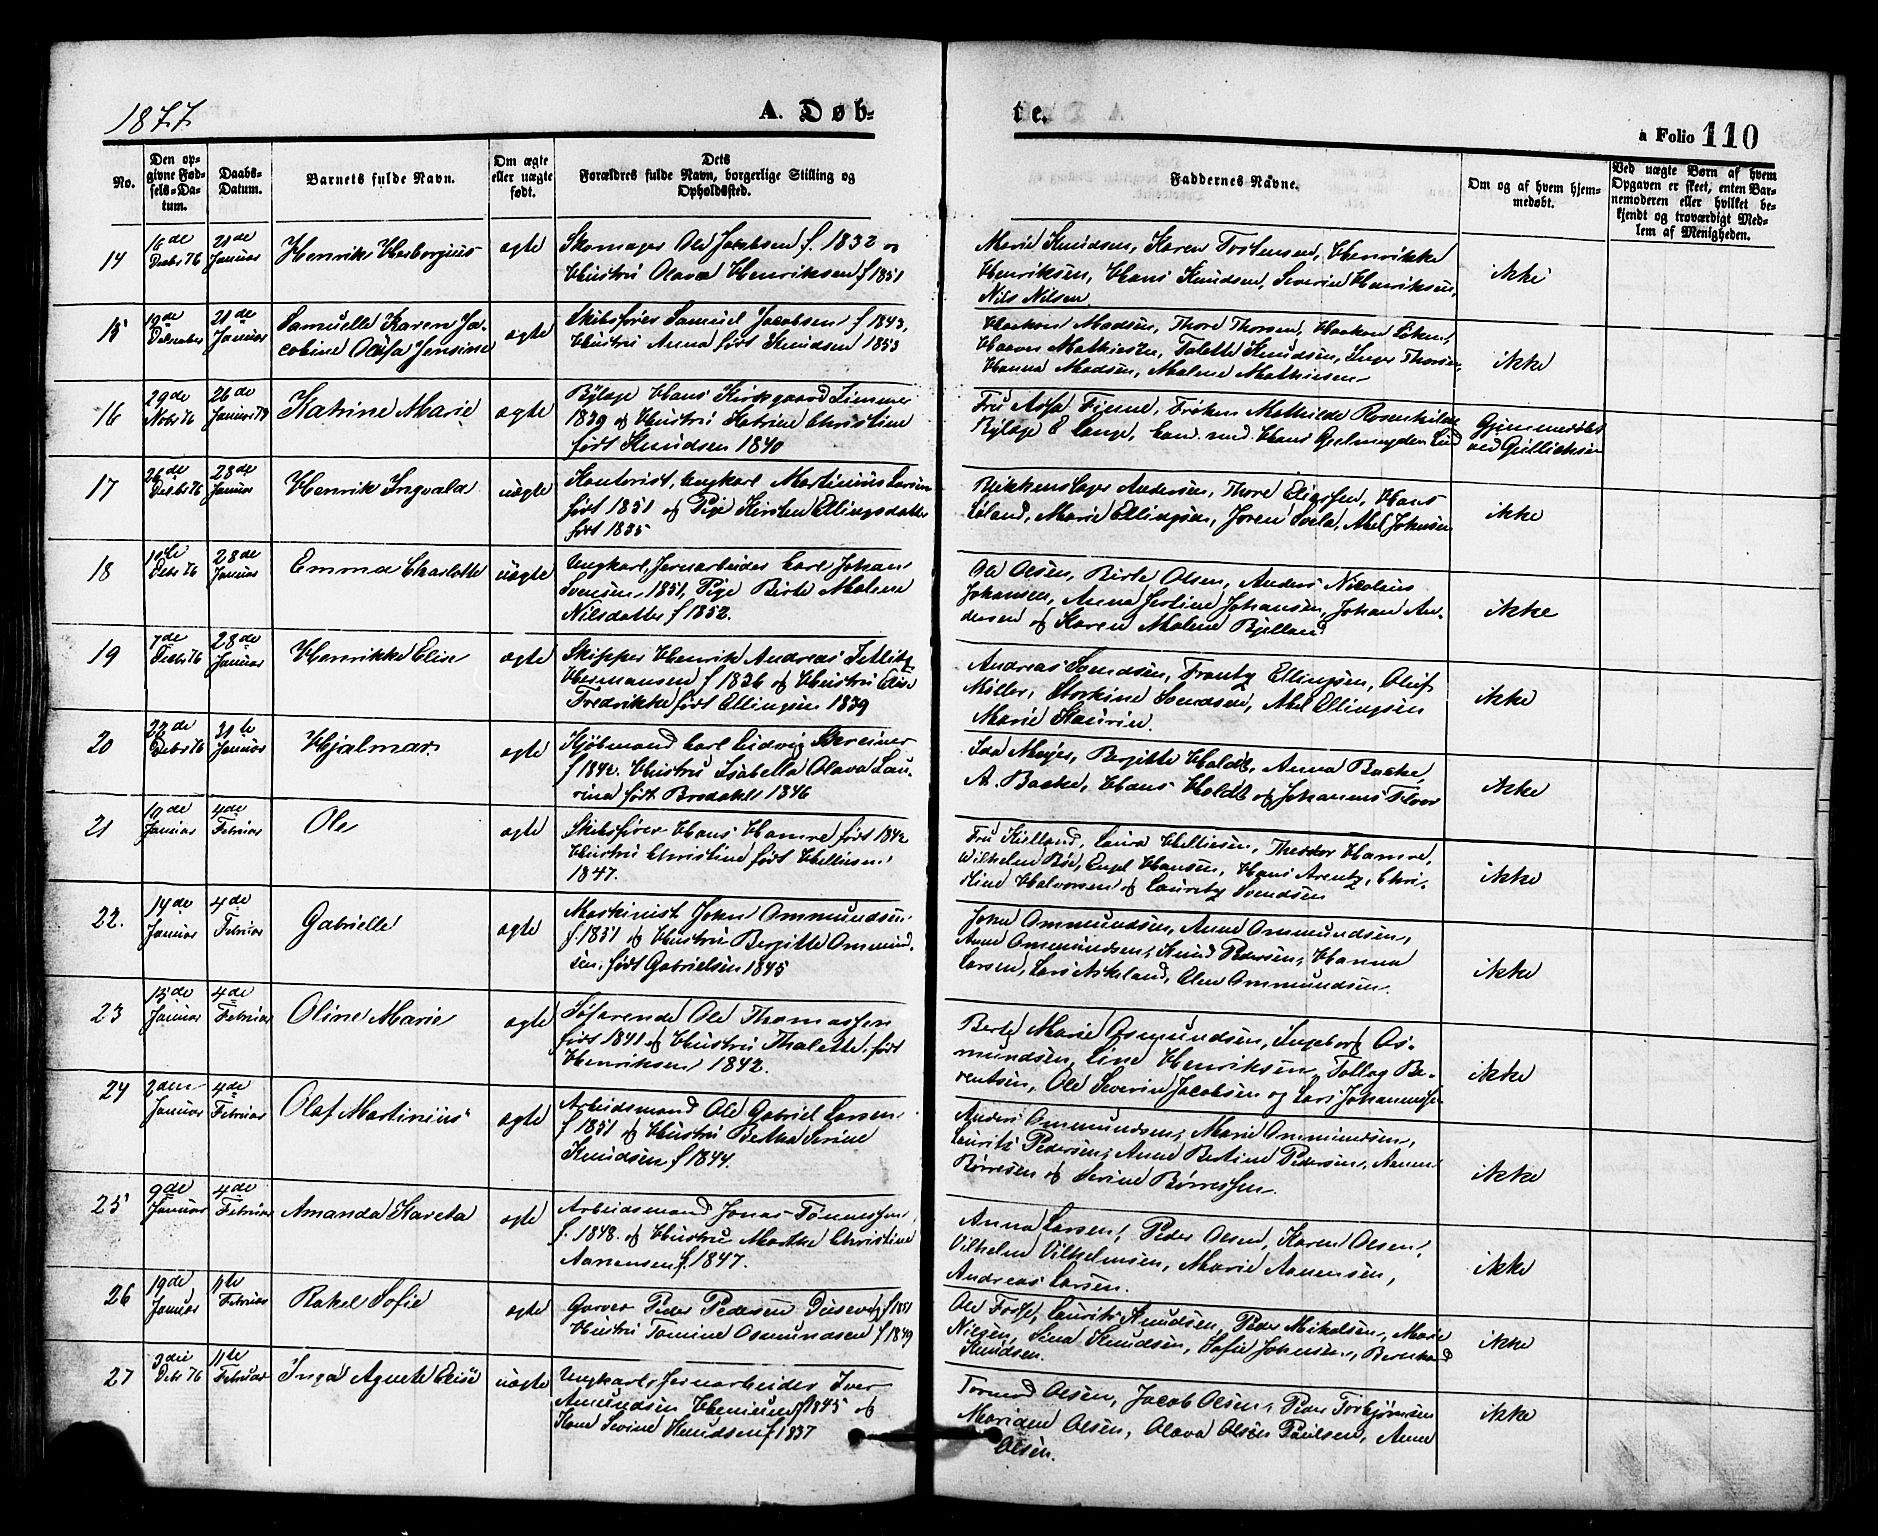 1877
A. Døb-
te.
a Folio 110
No.
Den op-
givne Fød-
sels-Da-
tum.
Daabs-
Datum.
Barnets fulde Navn.
Om ægte
eller uægte
født.
Dets
Forældres fulde Navn, borgerlige Stilling og
Opholdssted.
Faddernes Navne.
Om og af hvem hjem-
medøbt.
Ved uægte Børn af hvem
Opgaven er skeet, enten Bar-
nemoderen eller hvilket be-
kjendt og troværdigt Med-
lem af Menigheden.
14
16de
Decbr 76
21de
Januar
Henrik
ægte
Skomager Ole Jacobsen f. 1832 og
Hustru Olava Henriksen f 1851
Marie Knudsen, Karen Torstensen, Henrikke
Henriksen, Hans Knudsen, Severin Henriksen,
Nils Nilsen
ikke
15
21de
Januar
Samuelle Karen Ja-
cobine Olufa Jensine
ægte
Skibsfører Samuel Jacobsen f 1843,
Hustru Anna født Knudsen 1853
Haakon Madsen, Thore Thorsen, Haakon Eken,
Haavor Mathiesen, Talette Knudsen, Inger Thorsen,
Hanna Madsen, Malene Mathiesen
ikke
16
29de
Novbr 76
26de
Januar
Katrine Marie
ægte
Byfoged Hans Kirkgaard
1839 og Hustru Katrine Christine
født Knudsen 1840
Fru Frøken Mathilde Rosenkilde
Lange, Cand. med. Hans
17
26de
Decbr 76
28de
Januar
Henrik Ingvald
uægte
Kontorist, Ungkarl Martinius Larsen
født 1851 og Pige Kirsten Ellingsdatter
født 1835
Andersen, Thore Eliassen, Hans
Løland, Marie Ellingsen, Joren Abel Johnsen
ikke
18
Decbr 76
28de
Januar
Emma Charlotte
uægte
Ungkarl, Jernarbeider Carl Johan
Svensen 1851, Pige Birte Malene
Nilsdatter f 1852.
Ole Olsen, Birte Olsen, Anders Nicolaus
Johansen, Anna Johansen, Johan An-
dersen og Karen Malene Bjelland
ikke
19
7de
28de
Januar
Henrikke Elise
ægte
Skipper Henrik Andreas Tetlitz
Hermansen f 1836 og Hustru Elise
Fredrikke født Ellingsen 1839
Andreas Svendsen, Frantz Ellingsen, Oluf
Møller, Storkine Svendsen, Abel Ellingsen
Marie
ikke
20
Decbr 76
31te
Januar
Hjalmar
ægte
Kjøbmand Carl Ludvig
f 1842. Hustru Isabella Olava Lau-
rina født Brodahl 1846
Ida Meyer, Bergitte Holdt, Anna Backe,
A. Backe, Hans Holdt og Johannes Floor
ikke
21
10de
Januar
4de
Februar
Ole
ægte
Skibsfører Hans Hamre født 1842
Hustru Christine født Helliesen
1847.
Fru Kielland, Laura Helliesen, Theodor Hamre,
Wilhelm Bøe, Engel Hansen, Hans Arentz, Chri-
stine Halvorsen og Lauritz Svendsen
ikke
22.
14de
Januar
4de
Februar
Gabrielle
ægte
Maskinist John Ommundsen
f. 1851 og Hustru Bergitte Ommund-
sen, født Gabrielsen 1845
John Ommundsen, Anne Ommundsen,
Anne Ommundsen, Knud Pedersen, Hanna
Larsen, Lars Askeland, Olene Ommundsen.
ikke
23
15de
Januar
4de
Februar
Oline Marie
ægte
Søfarende Ole Thomassen
født 1841 og Hustru Thalette, født
Henriksen 1842.
Berte Marie Osmundsen, Ingeborg Os-
mundsen, Line Henriksen, Tollag Be-
rentsen, Ole Severin Jacobsen og Lars Johannessen
ikke
24
2den
Januar
4de
Februar
Olaf Martinius
ægte
Arbeidsmand Ole Gabriel Larsen
f 1851 og Hustru Betha Serine
Knudsen f 1844.
Anders Ommundsen, Marie Ommundsen,
Laurits Pedersen, Anne Bertine Pedersen,
Børresen og Serine Børresen.
ikke
25
9de
Januar
4de
Februar
Amanda Kareta
ægte
Arbeidsmand Jonas Tønnessen
f. 1848. og Hustru Marthe Christine
Aanensen f 1847.
Anna Larsen, Peder Olsen, Karen Olsen,
Vilhelm Vilhelmsen, Marie Aanensen,
Andreas Larsen.
ikke
26
19de
Januar
11te
Februar
Rakel Sofie
ægte
Garver Peder Pedersen f 1851
Hustru Tomine Osmundsen f 1849
Ole Fosse, Laurits Knudsen, Peder Mikalsen, Marie
Nilsen, Sina Knudsen, Sofie Johnsen, Bernhard
Knudsen.
ikke
27
3die
Decbr 76
11te
Februar
Inga Agnete Elise
uægte
Ungkarl, Jernarbeider Iver
Amundsen f 1845 og
Kone Sevine Knudsen f 1837
Tormod Olsen, Jacob Olsen, Peder Torbjørnsen
Olsen, Olava Olsen Paulsen, Anne
Olsen.
ikke